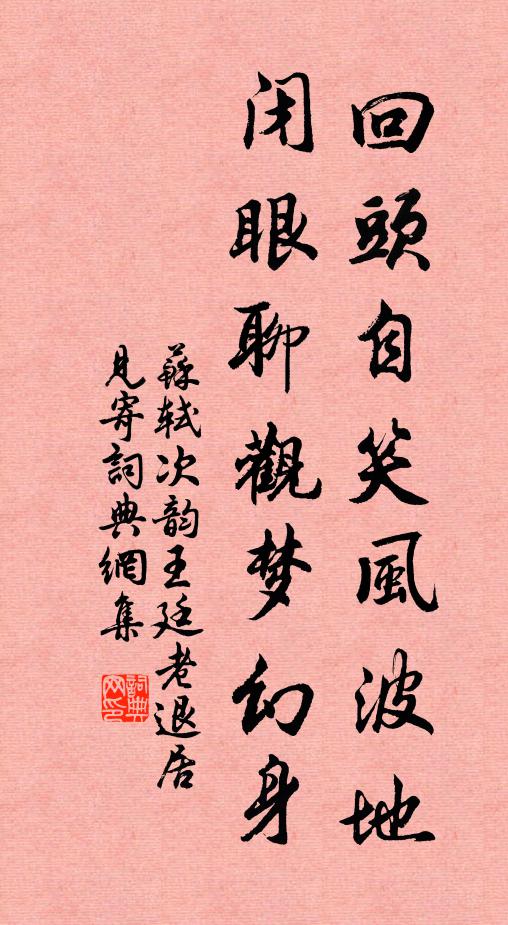 回頭自笑風波地
闭眼聊觀梦幻身
蘇轼次韵王廷老退居
見寄詞典網集
詞典网印